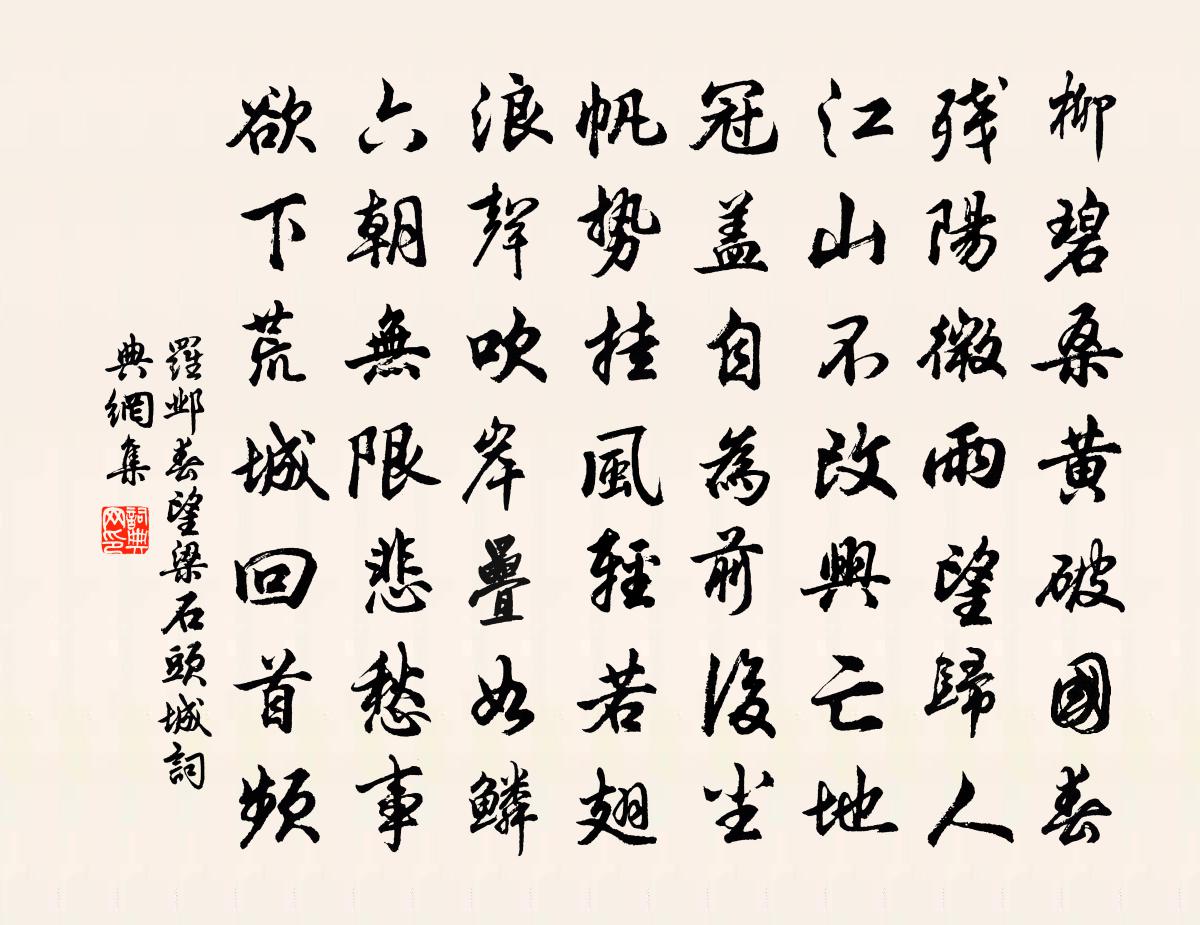 柳碧桑黄破國春
残陽微雨望歸人
江山不改興亡地
冠盖自為前後尘
帆势挂風輕若翅
浪聲吹岸疊如鱗
六朝無限悲愁事
欲下荒城回首頻
羅邺春望梁石頭城詞
典網集
詞典网印